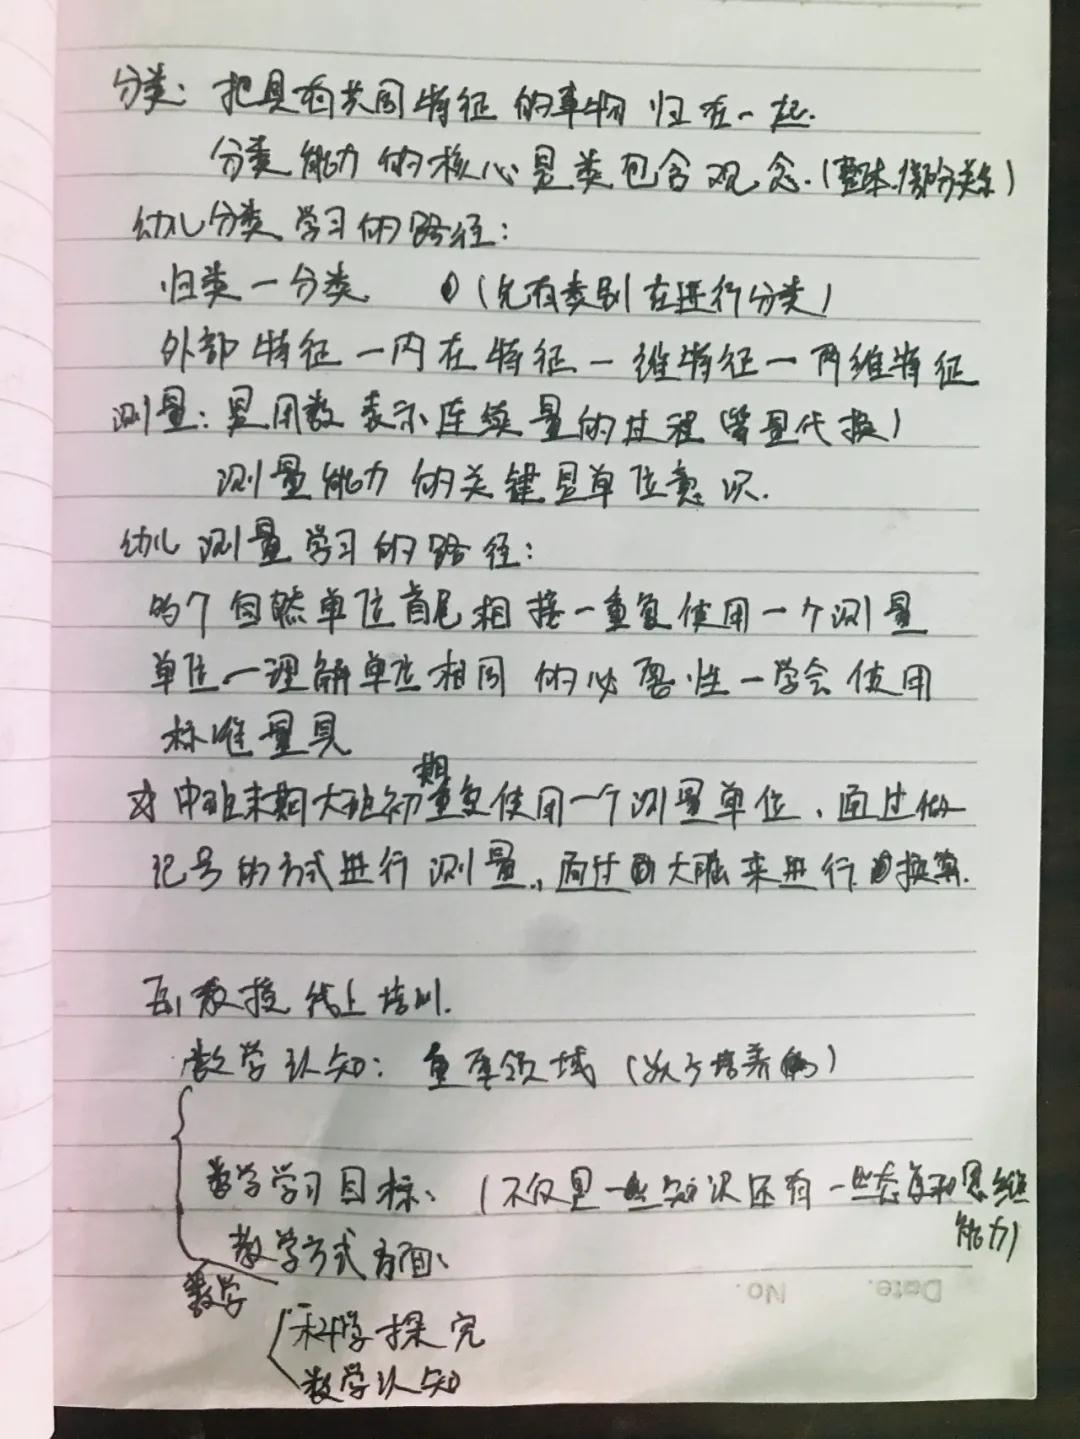 分类：把具有共同特征的事物归在一起.
分类能力的核心是类包含观念.(整体.部分关系)
幼儿分类学习的路径：
归类一分类 (先有类别在进行分类)
外部特征一内在特征一维特征一两维特征
测量：是用数表示连续量的过程(等量代换)
测量能力的关键是单位意识.
幼儿测量学习的路径：
个自然单位首尾相接一重复使用一个测量
单位一理解单位相同的必要性一学会使用
标准量具
期
对中班末期大班初重复使用一个测量单位、通过做
记号的方式进行测量,通过大脑来进行换算.
教授线上培训.
数学认知：重要领域(从多培养)
数学学习目标、(不仅是一些知识还有一些态度和思维
能力)
数学方式方面、
数学
科学探究
数学认知
No.
Date.